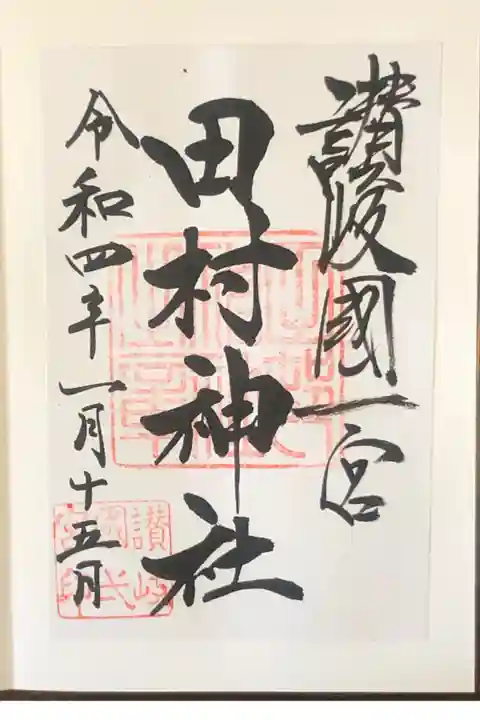 讃岐國一宮
田村神社
令和四年一月十五日
讃岐
國弌
宮印